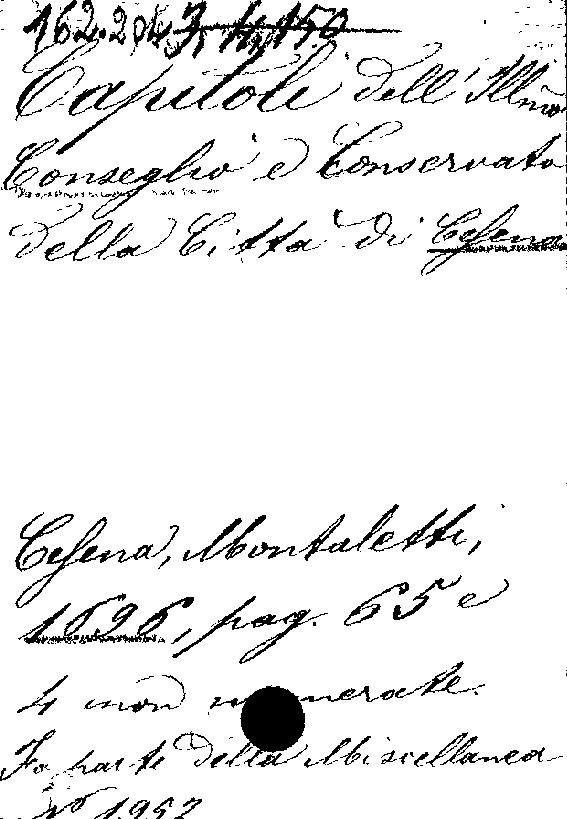 162.204
Capitoli dell' Illmo
Conseglio e Conservato
della Città di Cesena
Cesena, Montaletti,
1696, pag. 65 e
4 non numerate.
Fa parte della Miscellanea
No 1957